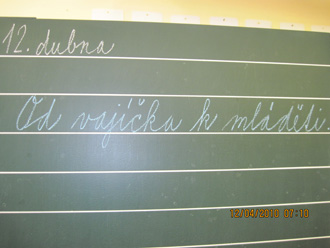 12. dubna
Od vajíčka k mláděti.
12/04/2010 07:10